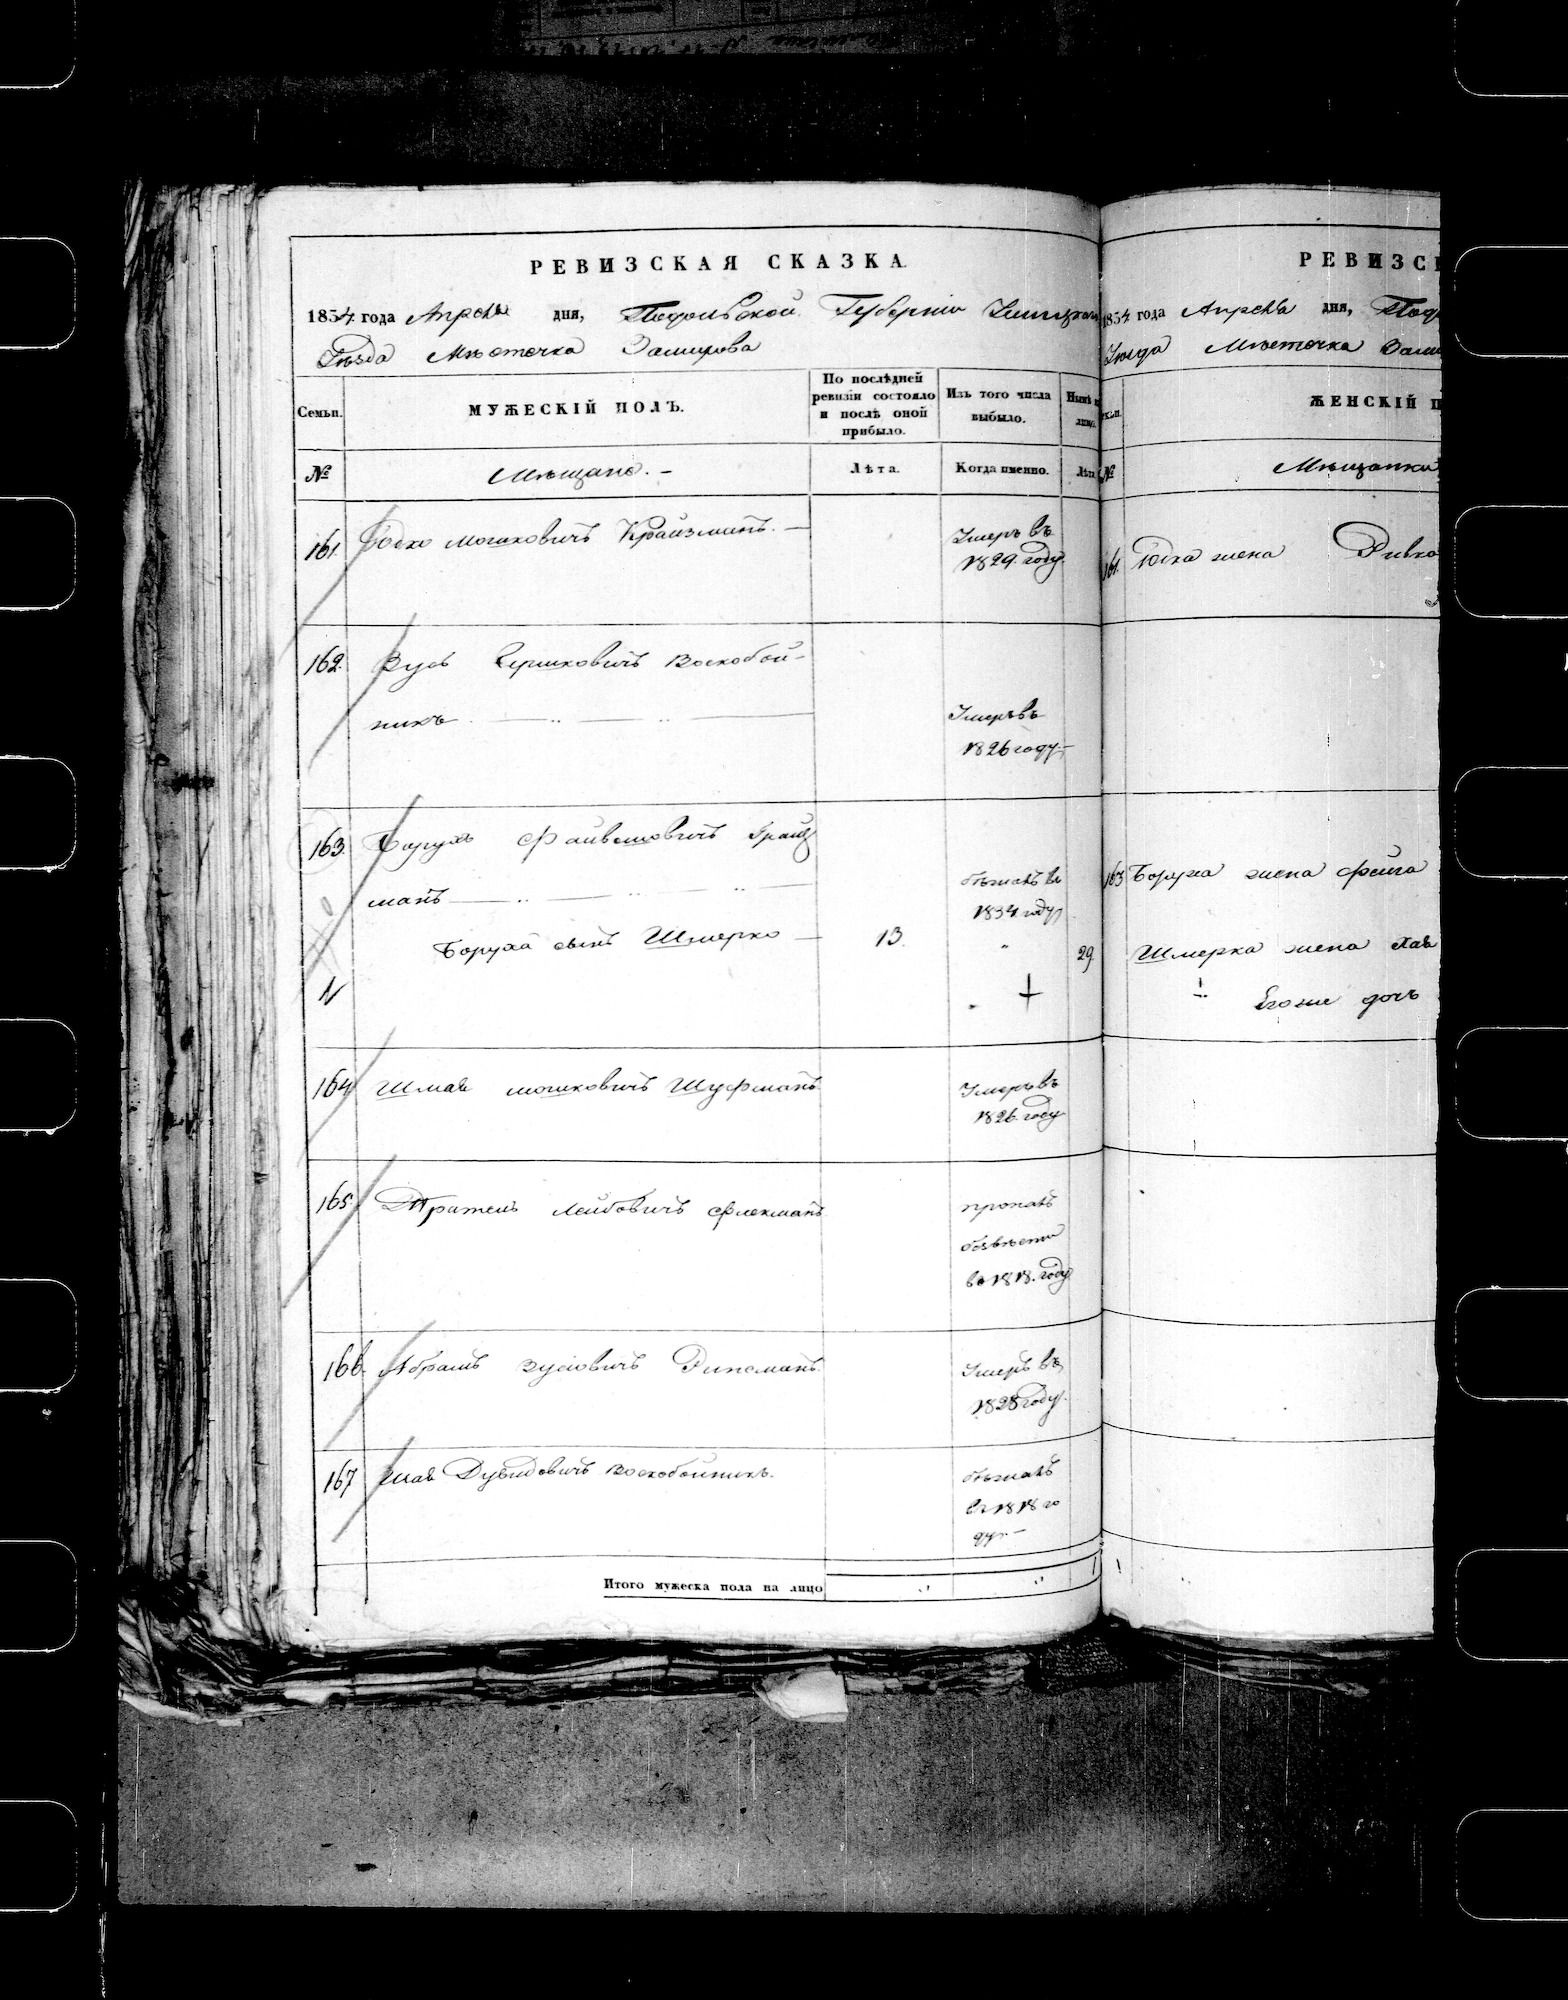 РЕВИЗСКАЯ СКАЗКА.
1834 года Апреля дня, Подольской Губерніи Ушицкаго
Уѣзда Мѣстечка Замихова
Семьи.
МУЖЕСКІЙ ПОЛЪ.
По послѣдней
ревизіи состояло
и послѣ оной
прибыло.
Изъ того числа
выбыло.
Нынѣ на
лицо.
№
Мѣщане. —
Лѣта.
Когда именно.
Лѣта
161. Юско Мошковичъ Крайзманъ. —
Умеръ въ
1829. году.
162. Зусь Гершковичъ Воскобой-
никъ
Умеръ въ
1826 году. —
163. Борухъ Файвешовичъ Грайз
манъ
бѣжалъ въ
1834 году
Боруха сынъ Шмерко — 13. " 29.
164 Шмая Мошковичъ Шуфманъ
Умеръ въ
1826. году
165. Лейбовичъ Флекманъ
пропалъ
безвѣстно
въ 1818. году
166. Абрамъ Зусіовичъ
Умеръ въ
1828 году.
167 Шая Дувидовичъ Воскобойникъ.
бѣжалъ
въ 1818 го
ду. —
Итого мужеска пола на лицо
РЕВИЗС
1834 года Апреля дня, Под
Уѣзда Мѣстечка Зами
ЖЕНСКІЙ П
№
Мѣщанки
161. Юска жена Ривка
163 Боруха жена Фейга
Шмерка жена Хая
Его же дочь